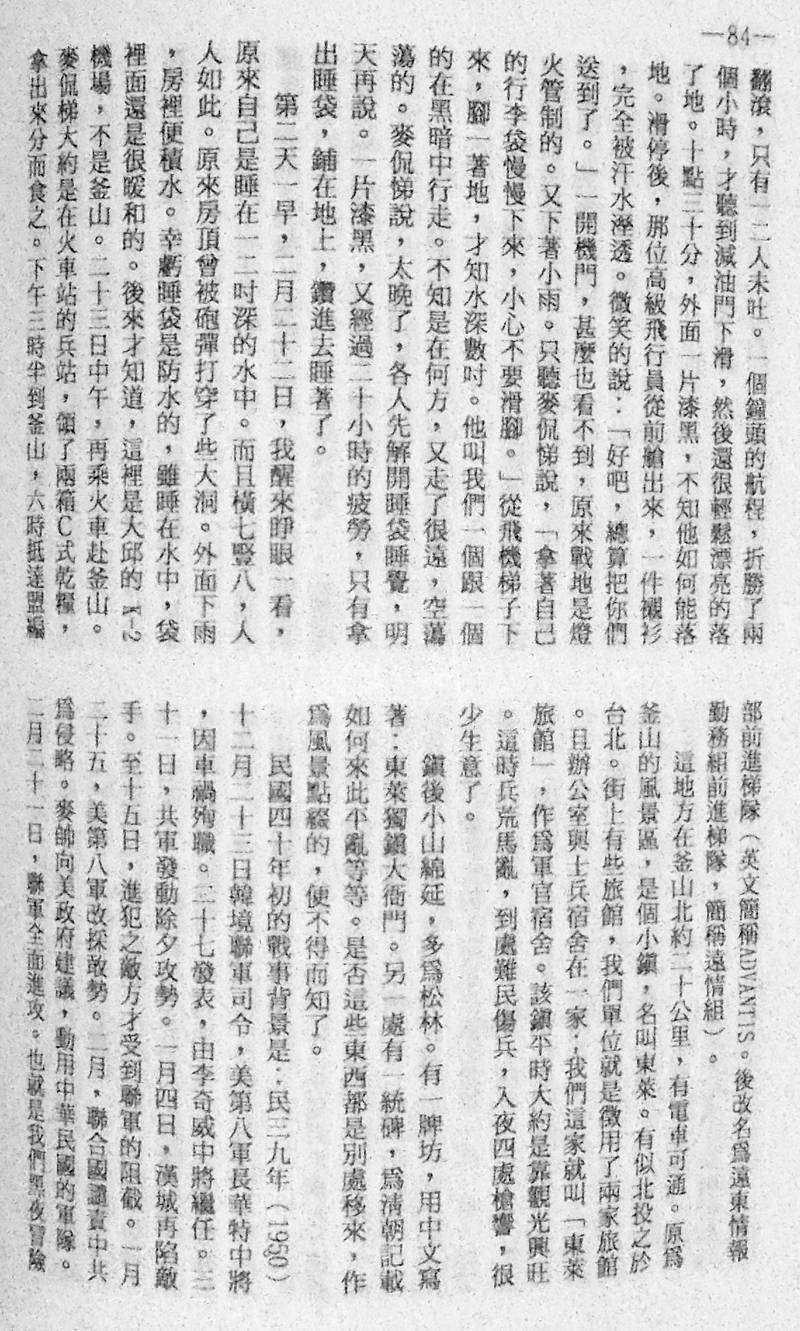 —84—
翻滾，只有一二人未吐。一個鐘頭的航程，折騰了兩
個小時，才聽到減油門下滑，然後還很輕鬆漂亮的落
了地。十點三十分，外面一片漆黑，不知他如何能落
地。滑停後，那位高級飛行員從前艙出來，一件襯衫
，完全被汗水溼透。微笑的說：「好吧，總算把你們
送到了。」一開機門，甚麼也看不到，原來戰地是燈
火管制的。又下著小雨。只聽麥侃悌說，「拿著自己
的行李袋慢慢下來，小心不要滑腳。」從飛機梯子下
來，腳一著地，才知水深數吋。他叫我們一個跟一個
的在黑暗中行走。不知是在何方，又走了很遠，空蕩
蕩的。麥侃悌說，太晚了，各人先解開睡袋睡覺，明
天再說。一片漆黑，又經過二十小時的疲勞，只有拿
出睡袋，鋪在地上，鑽進去睡著了。
第二天一早，二月二十二日，我醒來睜眼一看，
原來自己是睡在一二吋深的水中。而且橫七豎八，人
人如此。原來房頂曾被砲彈打穿了些大洞。外面下雨
，房裡便積水。幸虧睡袋是防水的，雖睡在水中，袋
裡面還是很暖和的。後來才知道，這裡是大邱的 K-2
機場，不是釜山。二十三日中午，再乘火車赴釜山。
麥侃悌大約是在火車站的兵站，領了兩箱C式乾糧，
拿出來分而食之。下午三時半到釜山，六時抵達盟編
部前進梯隊（英文簡稱ADVANTIS。後改名爲遠東情報
勤務組前進梯隊，簡稱遠情組）。
這地方在釜山北約二十公里，有電車可通。原爲
釜山的風景區，是個小鎮，名叫東萊。有似北投之於
台北。街上有些旅館，我們單位就是徵用了兩家旅館
。且辦公室與士兵宿舍在一家：我們這家就叫「東萊
旅館」，作爲軍官宿舍。該鎮平時大約是靠觀光興旺
。這時兵荒馬亂，到處難民傷兵，入夜四處槍響，很
少生意了。
鎮後小山綿延，多爲松林。有一牌坊，用中文寫
著：東萊獨鎮大衙門。另一處有一統碑，爲清朝記載
如何來此平亂等等。是否這些東西都是別處移來，作
爲風景點綴的，便不得而知了。
民國四十年初的戰事背景是：民三九年（1950）
十二月二十三日韓境聯軍司令，美第八軍長華特中將
，因車禍殉職。二十七發表，由李奇威中將繼任。三
十一日，共軍發動除夕攻勢。一月四日，漢城再陷敵
手。至十五日，進犯之敵方才受到聯軍的阻截。一月
二十五，美第八軍改採敵勢。二月，聯合國譴責中共
爲侵略。麥帥向美政府建議，動用中華民國的軍隊。
二月二十一日，聯軍全面進攻。也就是我們黑夜冒險